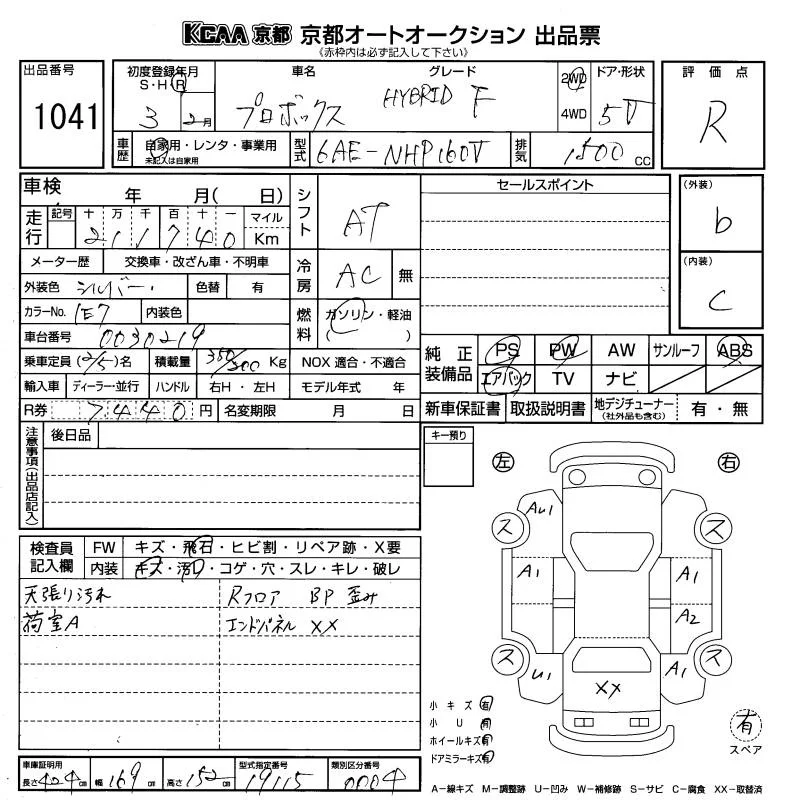 KCAA 京都 京都オートオークション 出品票
《赤枠内は必ず記入して下さい》
出品番号 1041
初度登録年月 S・H・R 3年 2月
車名 プロボックス
グレード HYBRID F
2WD 4WD
ドア・形状 5V
評価点 R
車歴 自家用・レンタ・事業用
未記入は自家用
型式 6AE-NHP160V
排気 1500 CC
車検 年 月( 日)
走行 記号 十 万 千 百 十 一 マイル Km
2 1 1 7 4 0
シフト AT
セールスポイント
(外装) b
(内装) c
メーター歴 交換車・改ざん車・不明車
冷房 AC 無
外装色 シルバー 色替 有
カラーNo. 1E7 内装色
燃料 ガソリン・軽油 ( )
車台番号 0030219
乗車定員 (2/5)名 積載量 350/300 Kg NOX 適合・不適合
純正装備品 PS PW AW サンルーフ ABS
エアバック TV ナビ
輸入車 ディーラー・並行 ハンドル 右H・左H モデル年式 年
R券 7440 円 名変期限 月 日
新車保証書 取扱説明書 地デジチューナー (社外品も含む) 有・無
注意事項(出品店記入) 後日品
キー預り
左 右
検査員記入欄 FW キズ・飛石・ヒビ割・リペア跡・X要
内装 キズ・汚れ・コゲ・穴・スレ・キレ・破レ
天張り汚れ Rフロア BP 歪み
荷室A エンドパネル XX
AU1
ス ス
A1 A1
A2
ス ス
U1 A1
XX
小キズ 有
小U 有
ホイールキズ 有
ドアミラーキズ 有
有
スペア
車庫証明用 長さ 424 cm 幅 169 cm 高さ 152 cm
型式指定番号 19115
類別区分番号 0004
A-線キズ M-調整跡 U-凹み W-補修跡 S-サビ C-腐食 XX-取替済